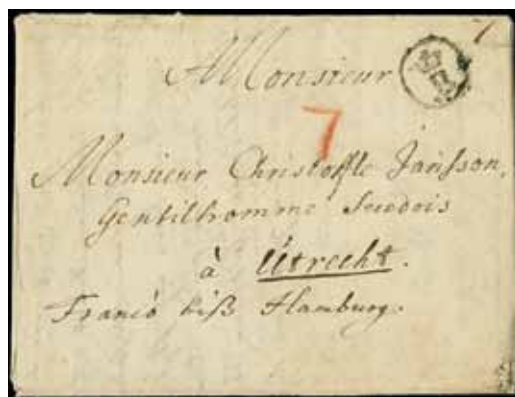 A Monsieur
7
Monsieur Christoffle Janſson,
Gentilhomme Suedois
à Utrecht.
Franco biß Hamburg.